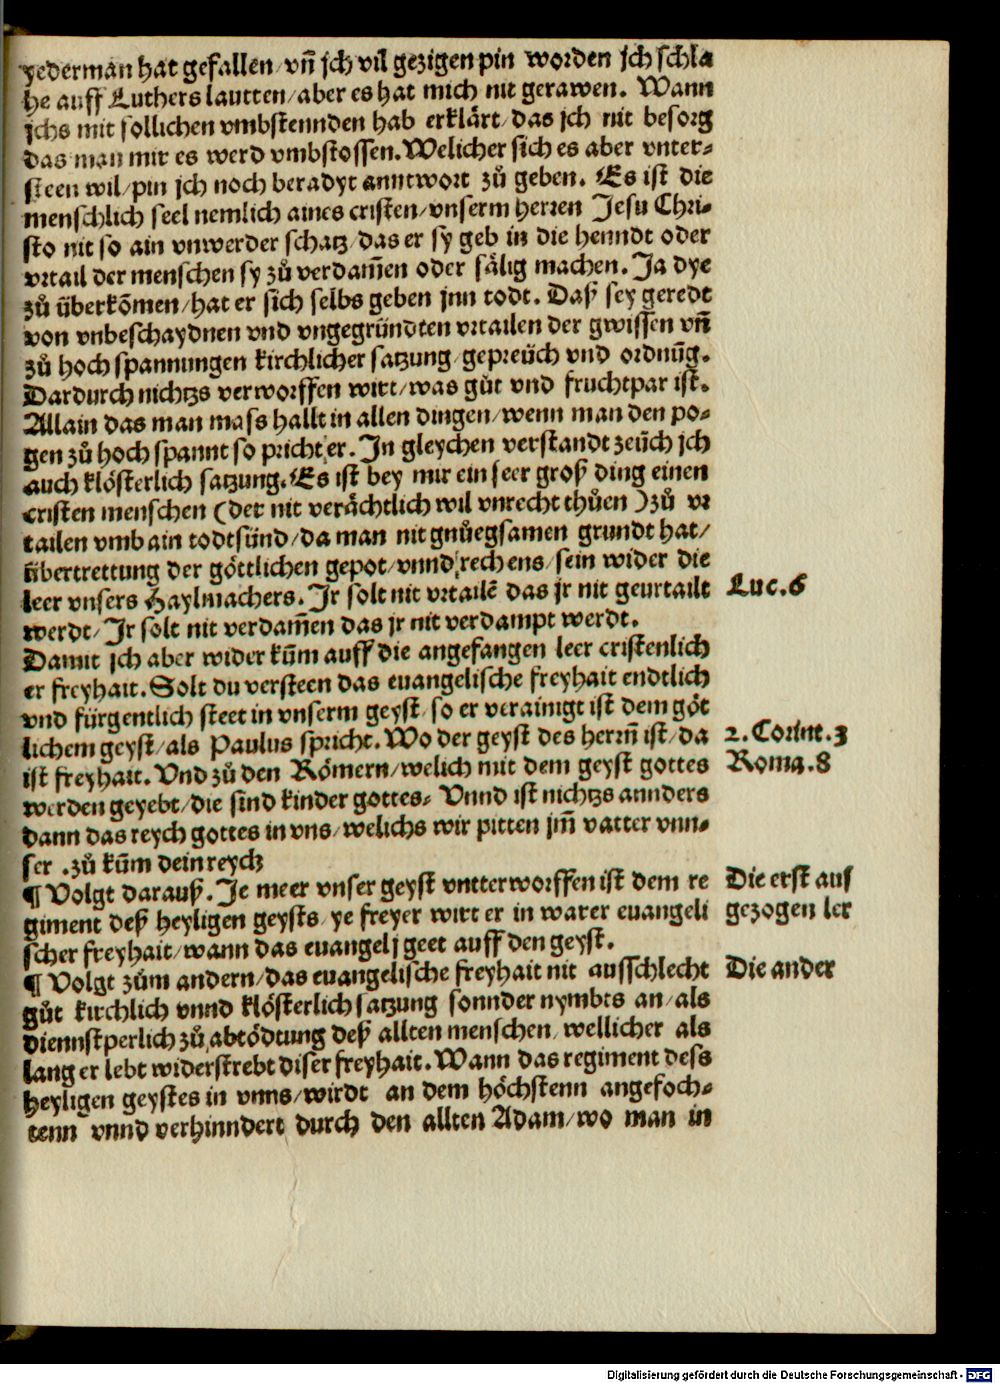 yederman hat gefallen/ vñ jch vil gezigen pin worden jch schla
he auff Luthers lautten/ aber es hat mich nit gerawen. Wann
jchs mit sollichen vmbstennden hab erklärt/ das jch nit besorg
das man mir es werd vmbstossen. Welicher sich es aber vnter⸗
steen wil/ pin jch noch beradyt anntwort zů geben. Es ist die
menschlich seel nemlich aines cristen/ vnserm herren Jesu Chri⸗
sto nit so ain vnwerder schatz/ das er sy geb in die henndt oder
vrtail der menschen sy zů verdam̃en oder sälig machen. Ja dye
zů überkõmen/ hat er sich selbs geben jnn todt. Daß sey geredt
von vnbeschaydnen vnd vngegründten vrtailen der gwissen vñ
zů hoch spannungen kirchlicher satzung/ gepreüch vnd ordnũg.
Dardurch nichtzs verworffen wirt/ was gůt vnd fruchtpar ist.
Allain das man mass hallt in allen dingen/ wenn man den po⸗
gen zů hoch spannt so pricht er. Jn gleychen verstandt zeüch jch
auch klösterlich satzung. Es ist bey mir ein seer groß ding einen
cristen menschen (der nit verächtlich wil vnrecht thůen) zů vr
tailen vmb ain todtsünd/ da man nit gnůegsamen grundt hat/
übertrettung der göttlichen gepot/ vnnd rechens/ sein wider die
leer vnsers Haylmachers. Jr solt nit vrtailẽ das jr nit geurtailt Luc. 6
werdt/ Jr solt nit verdam̃en das jr nit verdampt werdt.
Damit jch aber wider kũm auff die angefangen leer cristenlich
er freyhait. Solt du versteen das euangelische freyhait endtlich
vnd fürgentlich steet in vnserm geyst/ so er verainigt ist dem göt
lichem geyst/ als Paulus spricht. Wo der geyst des herrñ ist/ da 2. Corint. 3
ist freyhait. Vnd zů den Römern/ welich mit dem geyst gottes Roma. 8
werden geyebt/ die sind kinder gottes⸗ Vnnd ist nichtzs annders
dann das reych gottes in vns/ welichs wir pitten jm̃ vatter vnn⸗
ser . zů kũm dein reych
¶ Volgt darauß. Je meer vnser geyst vntterworffen ist dem re Die erst auß
giment deß heyligen geysts/ ye freyer wirt er in warer euangeli gezogen ler
scher freyhait/ wann das euangelj geet auff den geyst.
¶ Volgt zům andern/ das euangelische freyhait nit ausschlecht Die ander
gůt kirchlich vnnd klösterlich satzung sonnder nymbts an/ als
diennstperlich zů abtödtung deß allten menschen/ wellicher als
lang er lebt widerstrebt diser freyhait. Wann das regiment dess
heyligen geystes in vnns/ wirdt an dem höchstenn angefoch⸗
tenn vnnd verhinndert durch den allten Adam/ wo man in
Digitalisierung gefördert durch die Deutsche Forschungsgemeinschaft - DFG